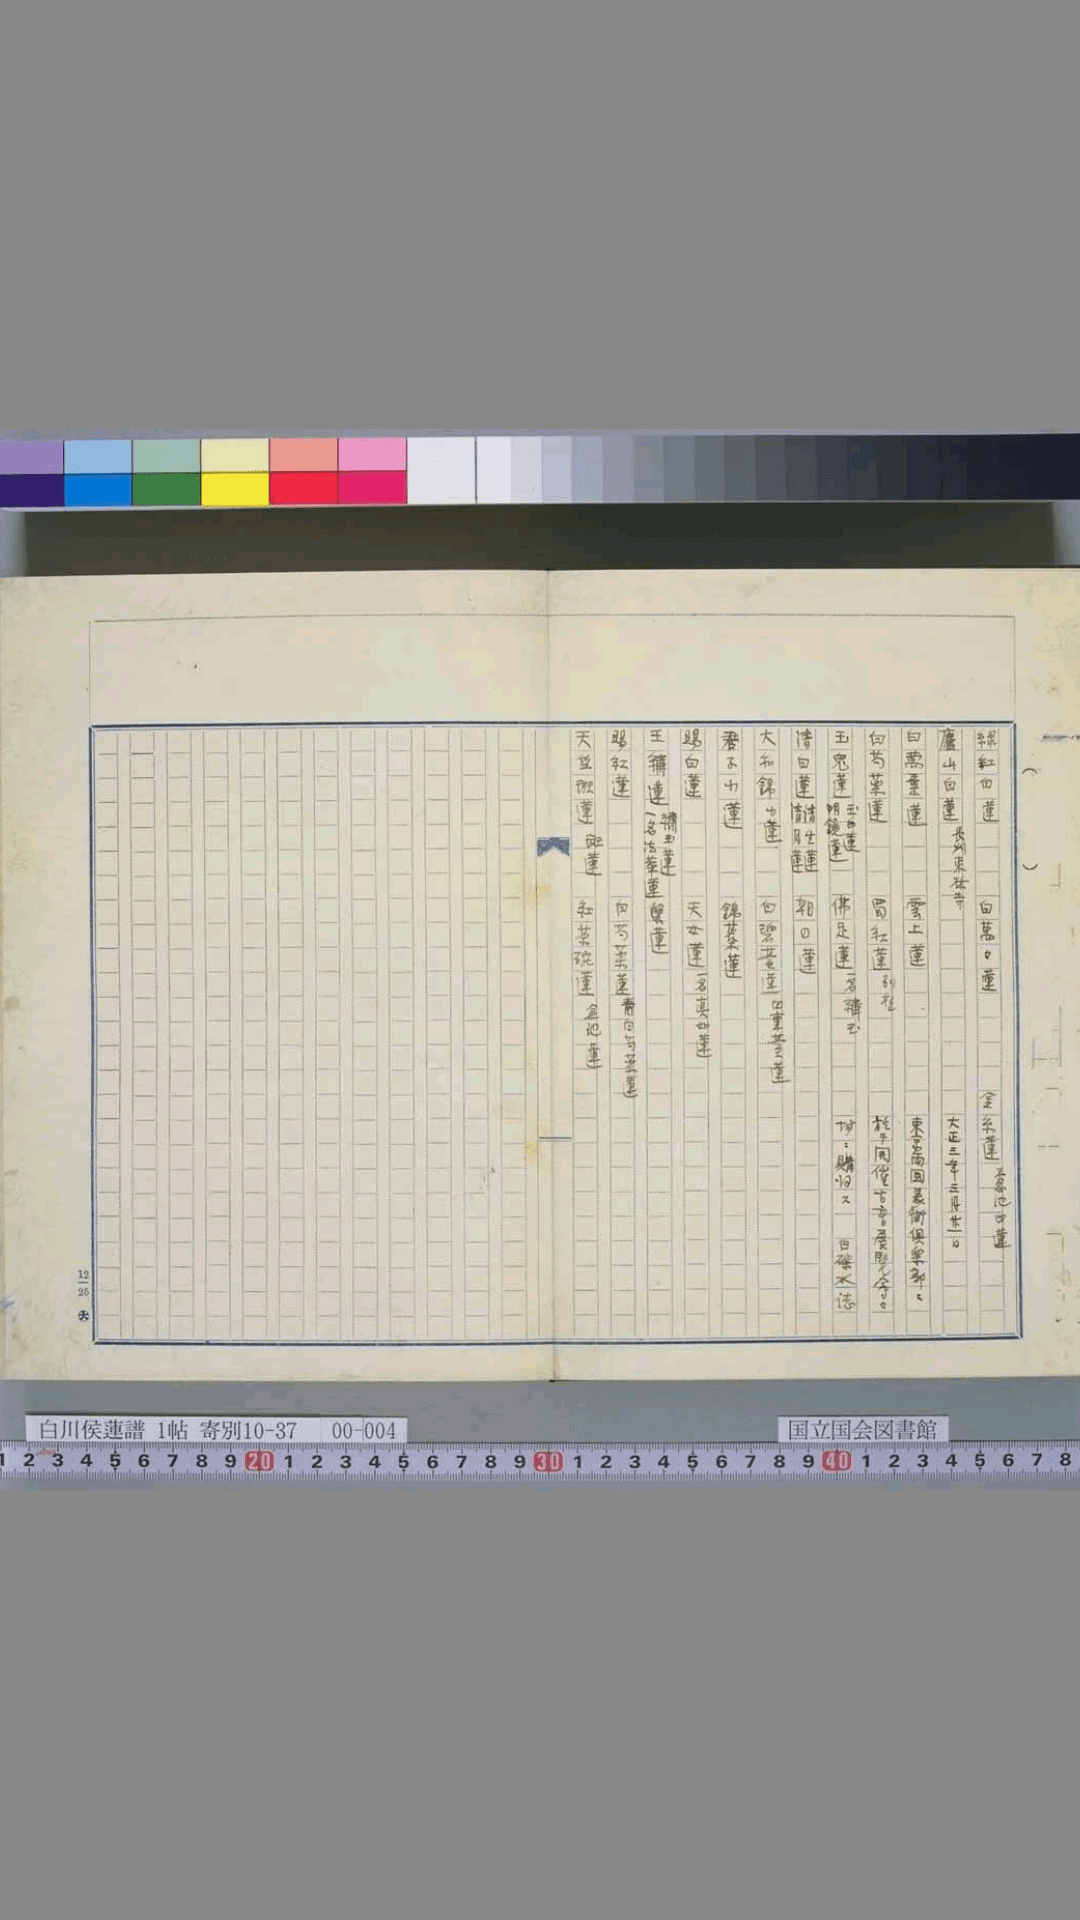 緑紅白蓮　白萬々蓮　金糸蓮
廬山白蓮　長州東林寺　大正三年三月廿一日
白萬葉蓮　雲上蓮　東京両国美術倶楽部
白芍薬蓮　蜀紅蓮　於テ開催古書展覧会
玉兎蓮　玉白蓮　明鏡蓮　佛足蓮　一名　購ヒ　白　水誌
清白蓮　清月蓮　朝日蓮
大和錦　蓮　白碧　蓮　蓮
君子　蓮　錦蕊蓮
賜白蓮　天女蓮　一名真如蓮
王　蓮　玉蓮　一名法華蓮　蟹蓮
賜紅蓮　白芍薬蓮　白芍薬蓮
天竺斑蓮　斑蓮　紅茶碗蓮　蓮
12
25
白川侯蓮譜 1帖 寄別10-37 00-004
国立国会図書館
1 2 3 4 5 6 7 8 9 20 1 2 3 4 5 6 7 8 9 30 1 2 3 4 5 6 7 8 9 40 1 2 3 4 5 6 7 8